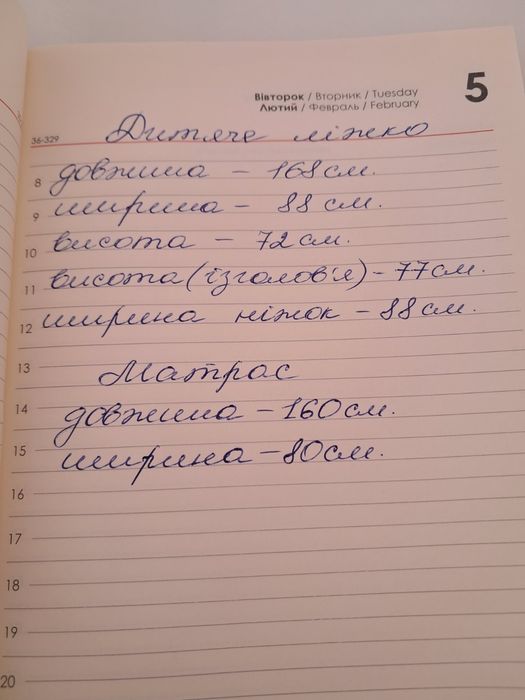 Вівторок / Вторник / Tuesday
Лютий / Февраль / February
5
36-329
Дитяче ліжко
8 довжина - 168 см.
9 ширина - 88 см.
10 висота - 72 см.
11 висота (ізголов'я) - 77 см.
12 ширина ніжок - 88 см.
13 Матрас
14 довжина - 160 см.
15 ширина - 80 см.
16
17
18
19
20